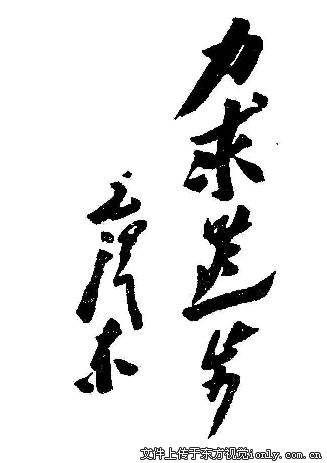 力求进步
毛泽东
文件上传于东方视觉ionly.com.cn